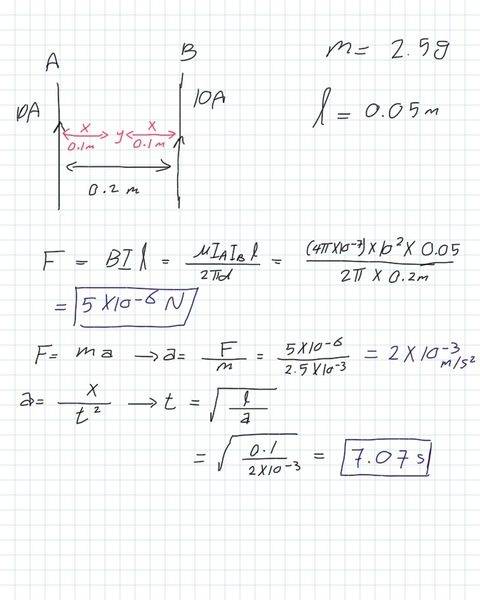 A
B
m = 2.5g
10A
10A
l = 0.05m
x
y
x
0.1m
0.1m
0.2 m
F = BIl = μI_A I_B l / 2πd = (4π×10^-7)×10²×0.05 / 2π × 0.2m
= 5×10^-6 N
F = ma → a = F/m = 5×10^-6 / 2.5×10^-3 = 2×10^-3 m/s²
a = x/t² → t = √(l/a)
= √(0.1 / 2×10^-3) = 7.07s